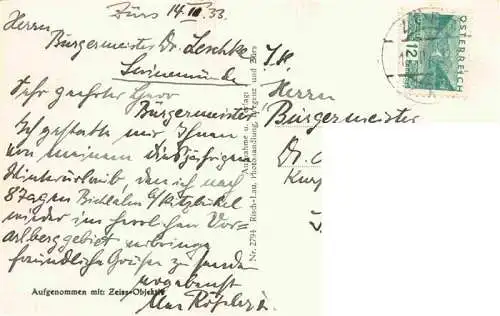 Zürs 14. III. 33.
Herrn
Bürgermeister Dr. Leschke
Swinemünde
Sehr geehrter Herr
Bürgermeister
Ich gestatte mir Ihnen
von meinem diesjährigen
Winterurlaub, den ich nach
8 Tagen Bichlalm b/Kitzbühel
wieder im herrlichen Vor-
arlberggebiet verbringe
freundliche Grüße zu senden
ergebenst
Max
Aufgenommen mit: Zeiss-Objektiv
Nr. 2794 Risch-Lau, Photohandlung, Bregenz und Zürs
Aufnahme u. Verlag:
Herrn
Bürgermeister
Dr.
ÖSTERREICH
12